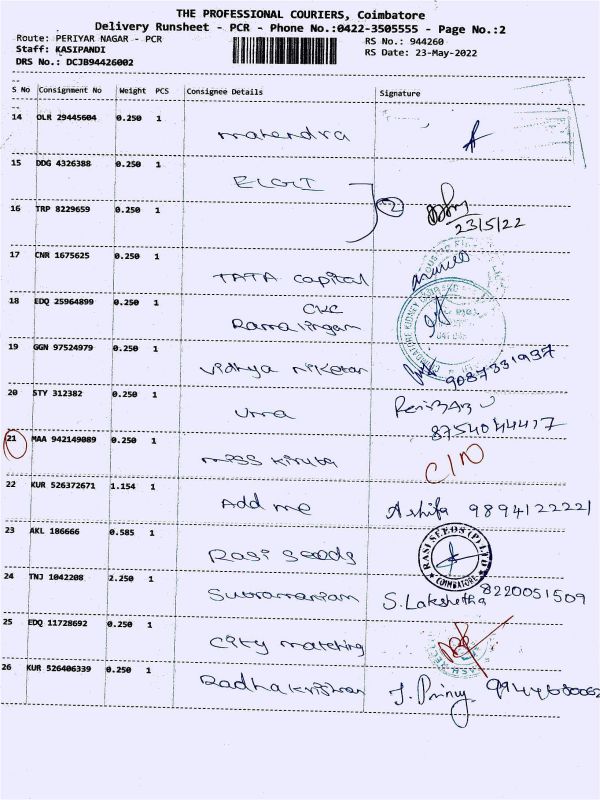 THE PROFESSIONAL COURIERS, Coimbatore
Delivery Runsheet - PCR - Phone No.:0422-3505555 - Page No.:2
Route: PERIYAR NAGAR - PCR
RS No.: 944260
Staff: KASIPANDI
RS Date: 23-May-2022
DRS No.: DCJB94426002
S No Consignment No Weight PCS Consignee Details Signature
14 OLR 29445604 0.250 1 mahendra
15 DDG 4326388 0.250 1 ELGI
16 TRP 8229659 0.250 1 2
23/5/22
17 CNR 1675625 0.250 1 TATA capital
18 EDQ 25964899 0.250 1 CKC
Ramalingam
19 GGN 97524979 0.250 1 Vidhya niketan 9087331937
20 STY 312382 0.250 1 Uma
8754044417
21 MAA 942149089 0.250 1 miss kiruba
22 KUR 526372671 1.154 1 Add me Ashifa 9894122221
23 AKL 186666 0.585 1 Rasi seeds RASI SEEDS (P) LTD COIMBATORE
24 TNJ 1042208 2.250 1 Subramaniam S. Lakshetha 8220051509
25 EDQ 11728692 0.250 1 City matching
26 KUR 526406339 0.250 1 Radhakrishnan